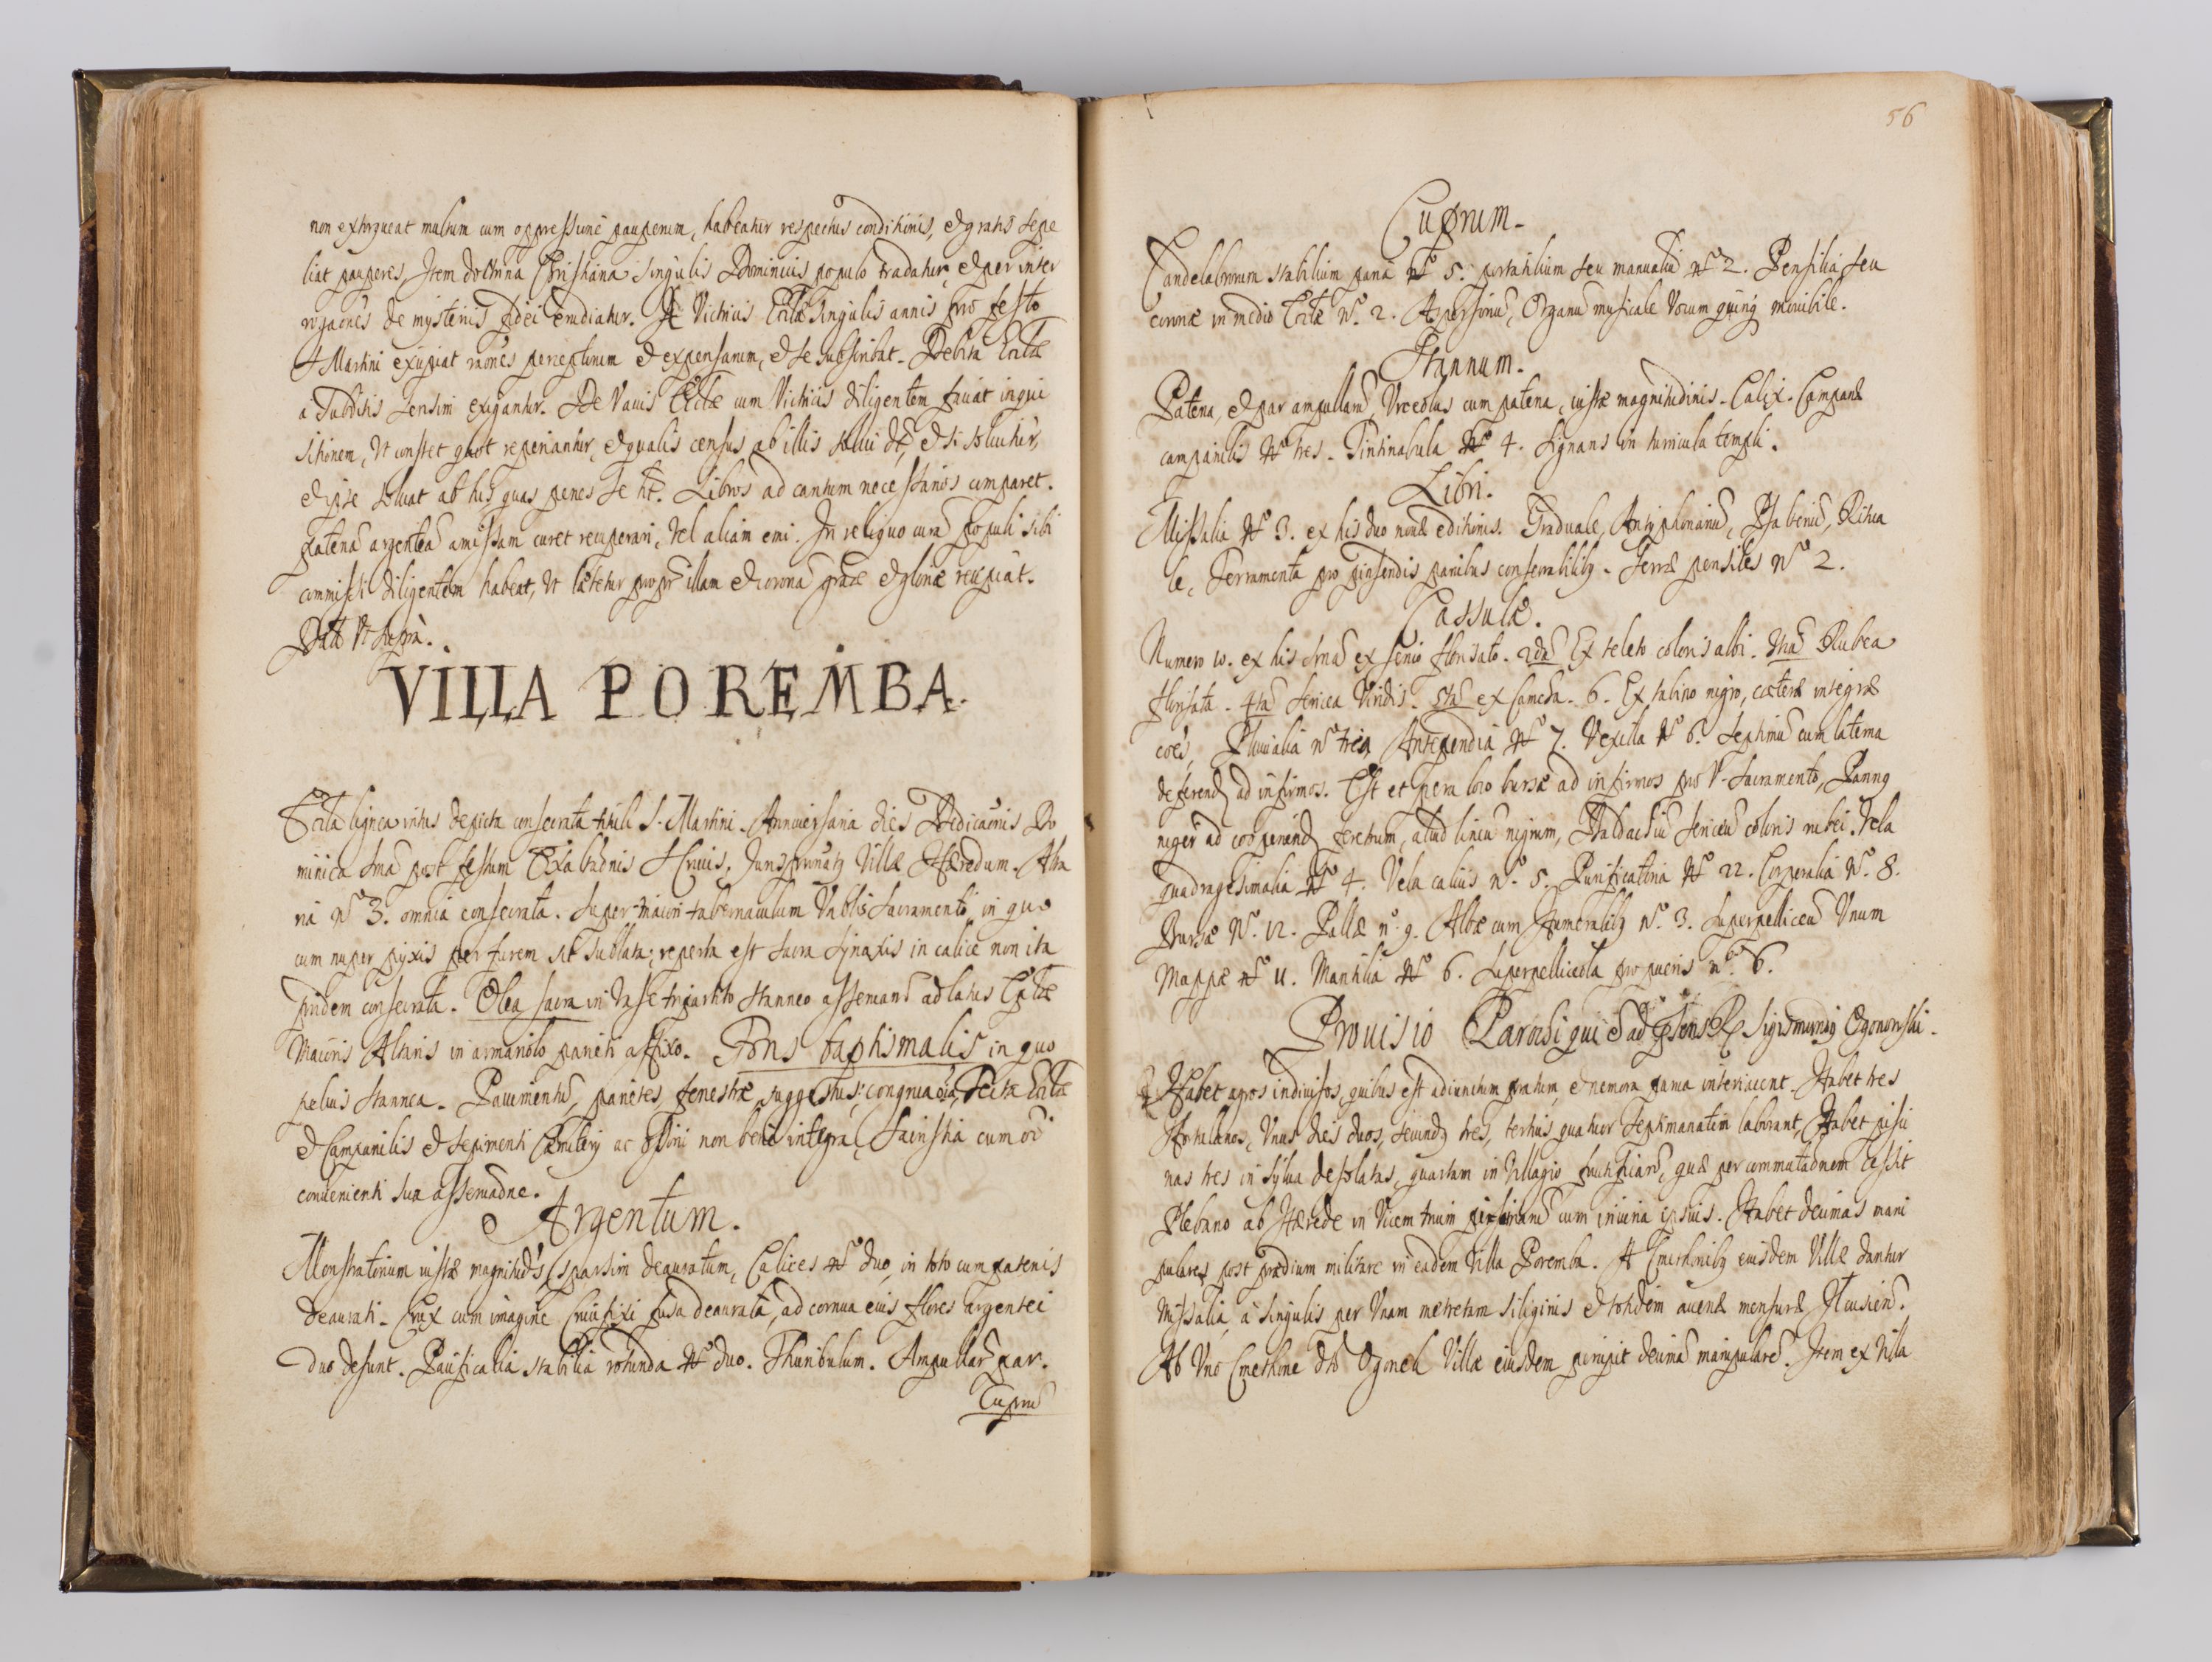 non extorqueat multum cum oppressione pauperum, habeatur respectus conditionis, et gratis sepe
liat pauperes, Item doctrina Christiana singulis Dominicis populo tradatur, et per inter
rogaones de mysterijs fidei erudiatur. A Vitricis Ecclae singulis annis pro festo
S Martini excipiat raones perceptorum et expensarum, et se subscribat. Debita Ecclae
a Subditis sensim exigantur. De Vaccis Ecclae cum Vitricis diligentem faciat inqui
sitionem, Vt constet quot reperiantur, et qualis census ab illis solui det, et si soluitur,
et ipse soluat ab his quas penes se ht. Libros ad cantum necessarios comparet.
patenã argenteã amissam curet recuperari, vel aliam emi. In reliquo curã populi sibi
commissi diligentem habeat, Vt lætetur propr illam et coronã grae et gloriæ recipiat.
Datt Vt supra.
VILLA POREMBA.
Eccla lignea intus depicta consecrata tituli S. Martini. Anniuersaria dies Dedicaonis Do
minica ima post festum Exaltaonis S Crucis. Juris prunatg Villæ Hæredum. Alta
ria No 3. omnia consecrata. Super maiori tabernaculum Vblis Sacramenti in quo
cum nuper pyxis per furem sit sublata; reperta est sacra synaxis in calice non ita
pridem consecrata. Olea sacra in vase tripartito stanneo asseruant ad latus Ecclae
Maioris Altaris in armariolo parieti affixo. Fons baptismalis in quo
peluis stannea. Pauimentũ, parietes, fenestræ, suggestus, congrua oia, Tecta Ecclae
et Campanilis et sepimenti Cæmiterij ac ossorii non bene integra, Sacristia cum
conuenienti sua asseruaone.
Argentum.
Monstratorium iustæ magnitudis, sparsim deauratum, Calices No duo, in toto cum patenis
deaurati. Crux cum imagine Crucifixi fusa deaurata, ad cornua eius flores argentei
duo desunt. Pacificalia stabilia rotunda No duo. Thuribulum. Ampullarũ par.
Cuprũ
56
Cuprum.
Candelabrorum stabilium paria No 5. portatilium seu manualiũ No 2. Pensilia seu
coronæ in medio Ecclae No. 2. Aspersoriũ, Organũ musicale Vocum quinq mouibile.
Stannum.
Patena, et par ampullarũ, Vrceolus cum patena, iustæ magnitudinis. Calix. Campanæ
campanilis No tres. Tintinabula No 4. Signans in turricula templi.
Libri.
Missalia No 3. ex his duo nouæ editionis. Graduale, Antiphonariũ, Psalteriũ, Ritua
le, Ferramenta pro pinsendis panibus consecrabilibg. Serræ pensiles No 2.
Cassulæ.
Numero 10. ex his ima ex serico florisato. 2da Ex teleto coloris albi. 3tia Rubea
florisata. 4ta serica Viridis. 5ta ex 6. Ex tabino nigro, cæteræ integræ
coes, Pluuialia No tria Antependia No 7. Vexilla No 6. Septimũ cum laterna
deferend ad infirmos. Est et pera loco bursæ ad infirmos pro V. Sacramento, Panng
niger ad cooperiend feretrum, aliud lineũ nigrum, Baldachiũ sericeũ coloris rubei. Vela
quadragesimalia No 4. Vela calicis No. 5. Purificatoria No 22. Corporalia No. 8.
Bursæ No. 12. Pallæ no. 9. Albæ cum Humeralibg No. 3. Superpelliceũ Vnum
Mappæ No 11. Mantilia No 6. Superpelliceola pro pueris no. 6.
Prouisio Parochi qui e ad psens R Sigismundg Ogonowski.
Habet agros indiuisos, quibus est adiunctum pratum, et nemora parua interiacent. Habet tres
Hortulanos, Vnus dies duos, secundg tres, tertius quatuor Septimanatim laborant, Habet pisci
nas tres in sylua desolatas, quartam in Villagio, quæ per commutaonem cessit
Plebano ab Hærede in Vicem trium piscinarũ cum iniuria ipsius. Habet decimas mani
pulares post prædium militare in eadem Villa Poremba. A Cmethonibg eiusdem Villæ dantur
Missalia, a singulis per Vnam metretam siliginis et totidem auenæ mensuræ Ilcusien.
Ab Vno Cmethone dto Ogonek Villæ eiusdem percipit decimã manipularẽ. Item ex Villa